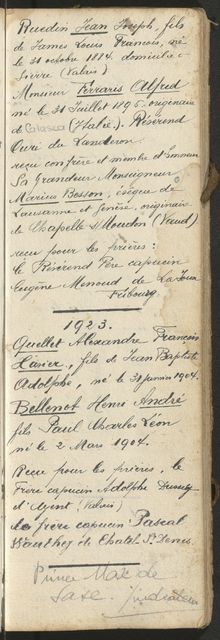 Ruedin Jean Joseph, fils
de James Louis Francois, né
le 31 octobre 1874 domicilié
Sierre (Valais)
Monsieur Ferraris Alfred
né le 31 Juillet 1895. originaire
de Calasca (Italie). Révérend
Curé du Landeron.
reçu confrère et membre d'honneur
Sa Grandeur Monseigneur
Marius Besson, évêque de
Lausanne et Genève, originaire
de Chapelle s/Moudon (Vaud)
reçu pour les prières:
le Révérend Père capucin
Eugène Menoud de La Joux
Fribourg.
1923.
Quellet Alexandre François
Xavier, fils de Jean Baptiste
Adolphe, né le 31 janvier 1904.
Bellenot Henri André
fils Paul Charles Léon
né le 2 Mars 1904.
Reçu pour les prières, le
Frère capucin Adolphe
d'Ayent (Valais)
le frère capucin Pascal
Vauthey de Chatel St Denis.
Prince Max de
Saxe.